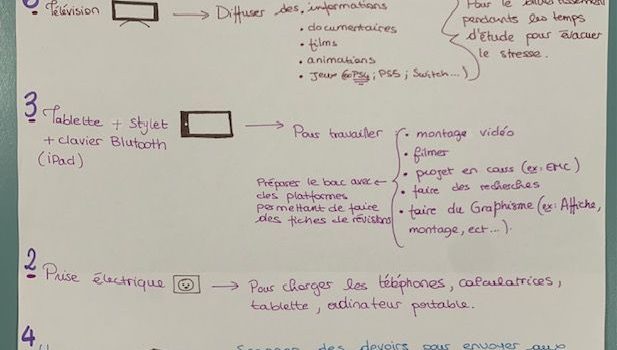 Télévision → Diffuser des informations
• documentaires
• films
• animations
• jeux (PS4; PS5; Switch...)
Pour le divertissement
pendants les temps
d'étude pour évacuer
le stress.
3 Tablette + Stylet
+ clavier Blutooth
(iPad)
→ Pour travailler
• montage vidéo
• filmer
• projet en cours (ex: EMC)
• faire des recherches
• faire du Graphisme (ex: Affiche,
montage, ect...).
Préparer le bac avec
des plateformes
permettant de faire
des fiches de révisions
2 Prise électrique → Pour charger les téléphones, calculatrices,
tablette, ordinateur portable.
4
des devoirs pour envoyer aux